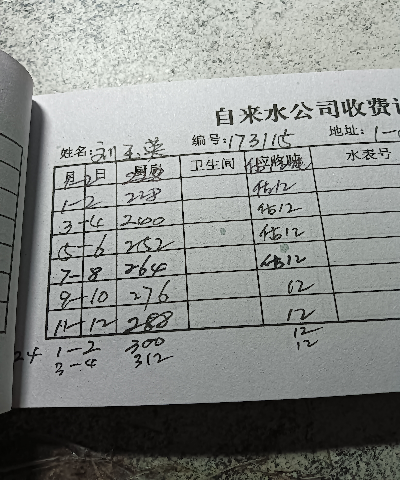 自来水公司收费
姓名: 刘玉英 编号: 173115 地址: 1-
月 日 厨房 卫生间 水表号
1-2 228 估12
3-4 240 估12
5-6 252 估12
7-8 264 估12
9-10 276 12
11-12 288 12
24 1-2 300 12
3-4 312 12